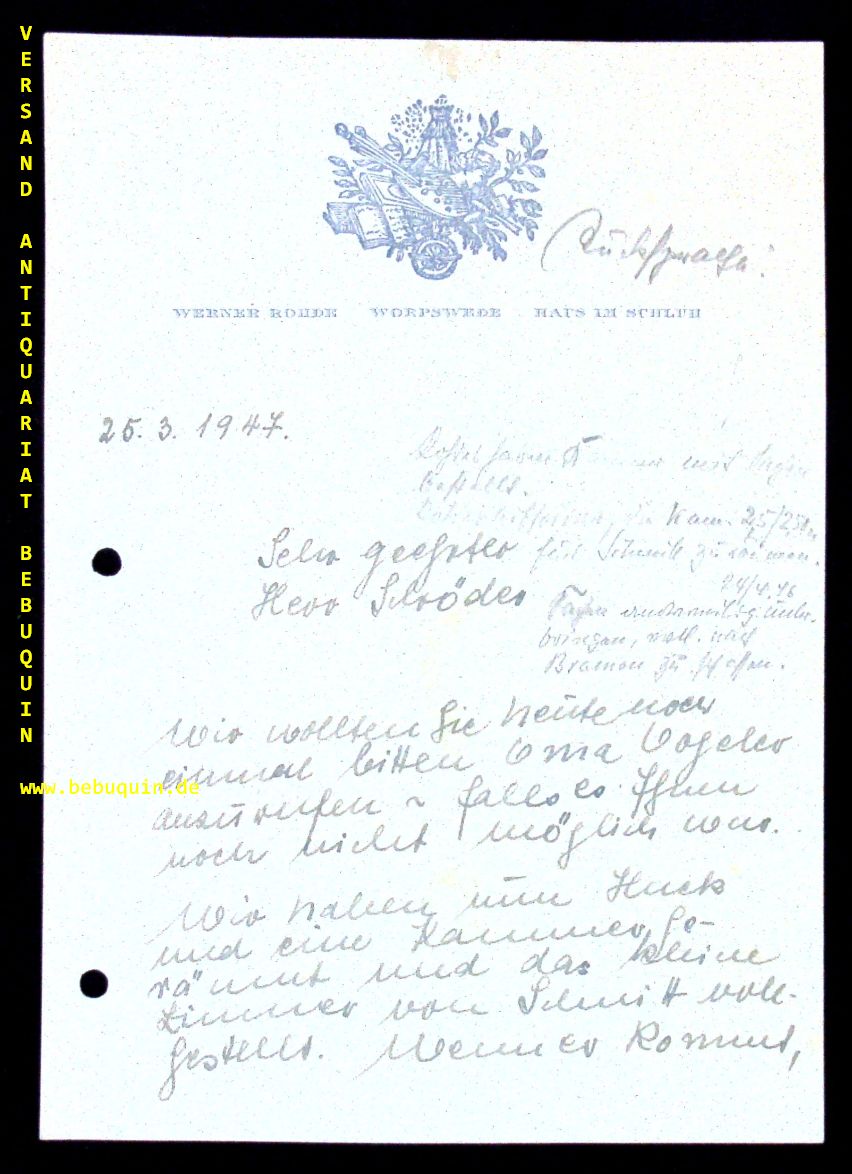 VERSAND ANTIQUARIAT BEBUQUIN
www.bebuquin.de
Rücksprache!
WERNER ROHDE WORPSWEDE HAUS IM SCHLUH
25. 3. 1947.
mit
bestellt.
Kam. 25/2
Sehr geehrter
für Schmitt zu räumen.
Herr Schröder
bringen, evtl. nach
Bremen zu schaffen.
Wir wollten Sie heute noch
einmal bitten Oma Vogeler
anzurufen ~ falls es Ihnen
noch nicht möglich war.
Wir haben nun Huck
und eine Kammer ge-
räumt und das kleine
Zimmer von Schmitt voll-
gestellt. Wenn er kommt,